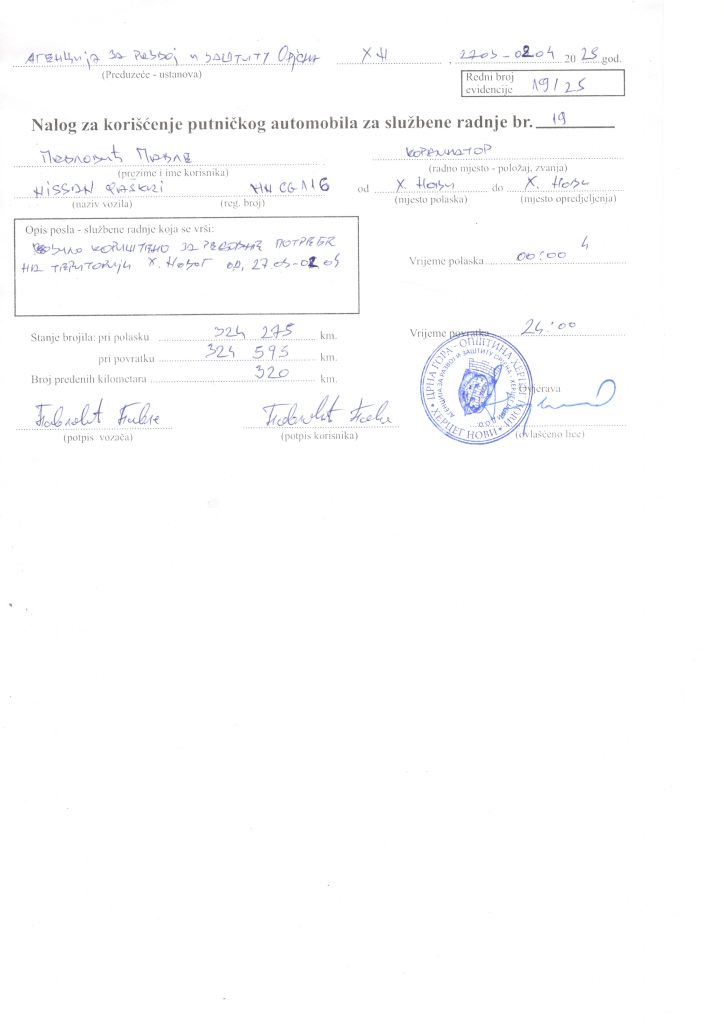 Агенција за развој и заштиту Орјена ХН, 27 03 - 02 04 2025 год.
(Preduzeće - ustanova)
Redni broj
evidencije 19/25
Nalog za korišćenje putničkog automobila za službene radnje br. 19
Павловић Павле
(prezime i ime korisnika)
(radno mjesto - položaj, zvanja)
NISSAN QASHQAI HN CG116 od Х. Нови do Х. Нови
(naziv vozila) (reg. broj) (mjesto polaska) (mjesto opredjeljenja)
Opis posla - službene radnje koja se vrši:
Возило кориштено за потребе
на територији Х. Новог од 27 03-02 04
Vrijeme polaska 00:00
Stanje brojila: pri polasku 324 275 km. Vrijeme povratka 24:00
pri povratku 324 595 km.
Broj pređenih kilometara 320 km.
Ovjerava
(potpis vozača) (potpis korisnika) (ovlašćeno lice)
ЦРНА ГОРА - ОПШТИНА ХЕРЦЕГ НОВИ
ХЕРЦЕГ НОВИ